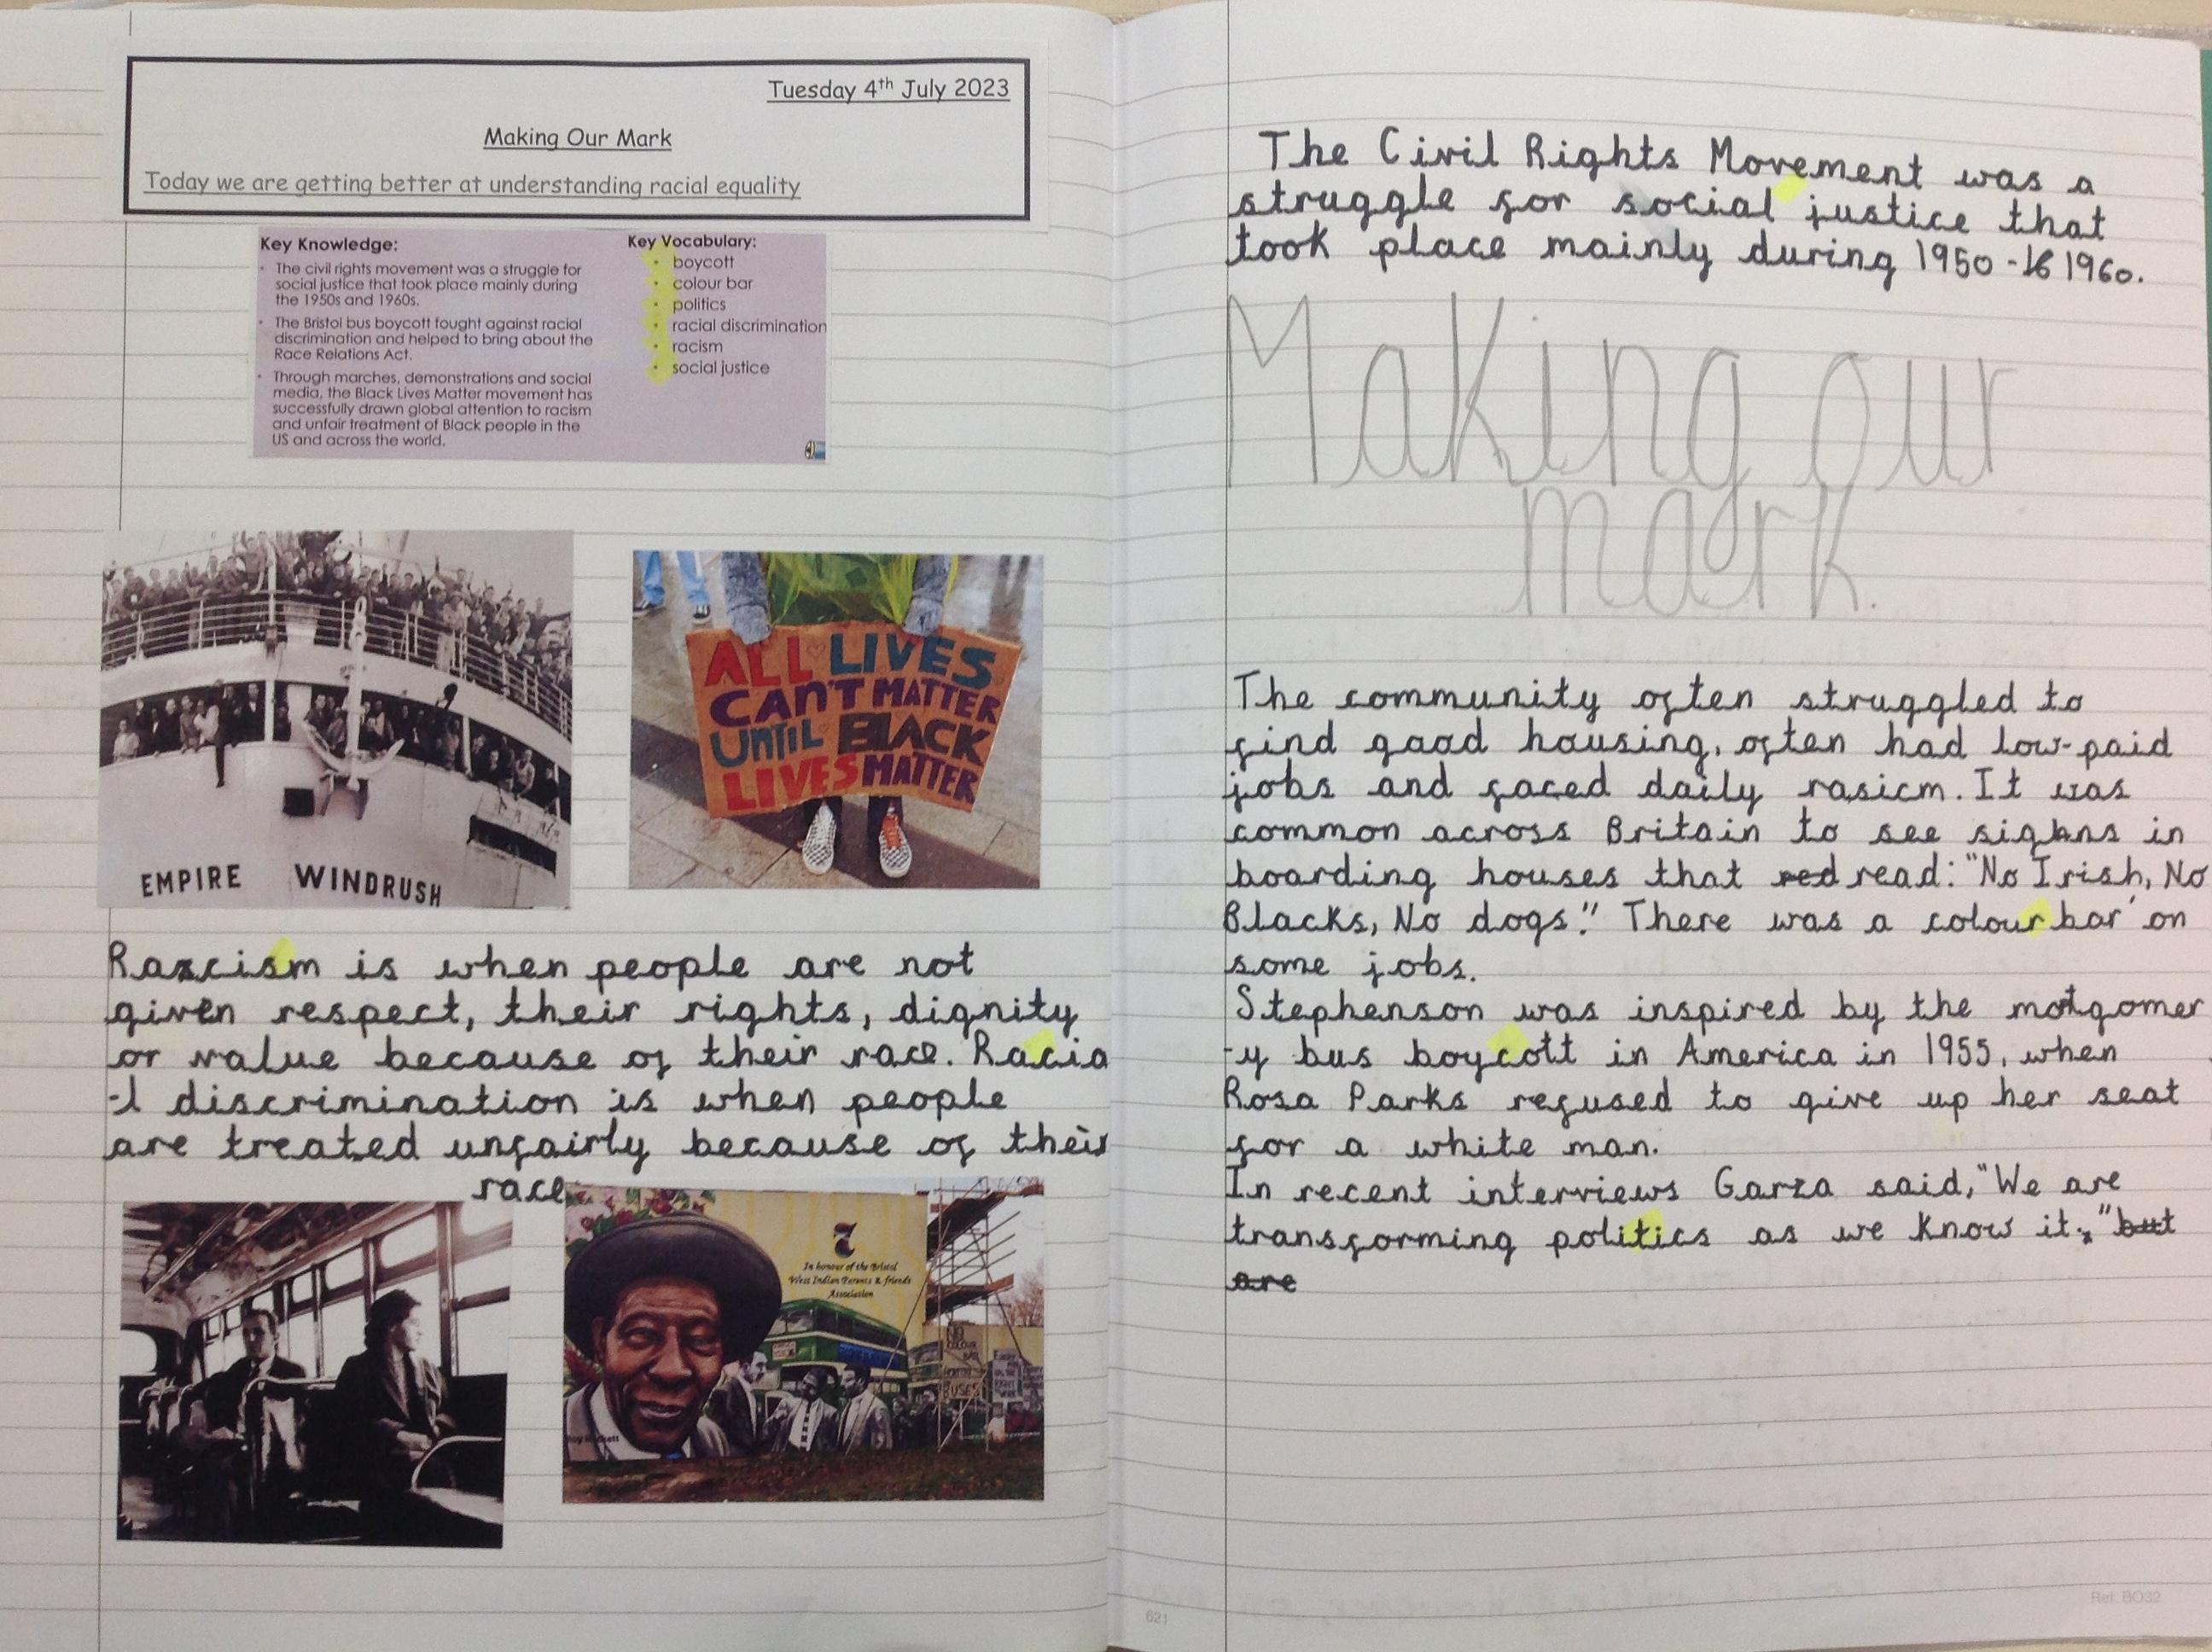 Tuesday 4th July 2023
Making Our Mark
Today we are getting better at understanding racial equality
Key Knowledge:
• The civil rights movement was a struggle for
social justice that took place mainly during
the 1950s and 1960s.
• The Bristol bus boycott fought against racial
discrimination and helped to bring about the
Race Relations Act.
• Through marches, demonstrations and social
media, the Black Lives Matter movement has
successfully drawn global attention to racism
and unfair treatment of Black people in the
US and across the world.
Key Vocabulary:
• boycott
• colour bar
• politics
• racial discrimination
• racism
• social justice
EMPIRE WINDRUSH
ALL LIVES
CAN'T MATTER
UNTIL BLACK
LIVES MATTER
Racism is when people are not
given respect, their rights, dignity
or value because of their race. Racia
-l discrimination is when people
are treated unfairly because of their
race
7
In honour of the Bristol
West Indian Parents & friends
Association
NO
COLOUR
BAR
BUSES
The Civil Rights Movement was a
struggle for social justice that
took place mainly during 1950 - 1960.
Making our
mark.
The community often struggled to
find good housing, often had low-paid
jobs and faced daily rasicm. It was
common across Britain to see sighns in
boarding houses that red read: "No Irish, No
Blacks, No dogs." There was a colour bar' on
some jobs.
Stephenson was inspired by the motgomer
-y bus boycott in America in 1955, when
Rosa Parks refused to give up her seat
for a white man.
In recent interviews Garza said, "We are
transforming politics as we know it." but
are
621
Ref. BO32